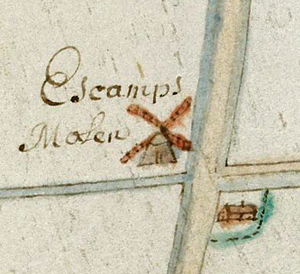 Escamps
Molen